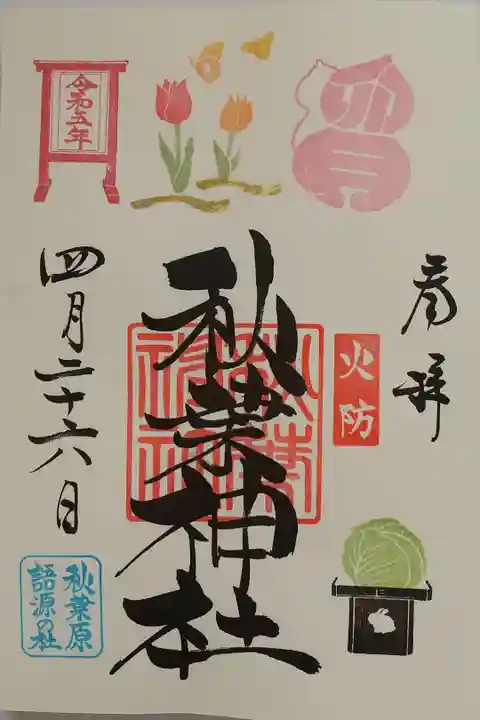 奉拝
火防
秋葉神社
秋葉
神社
令和五年
四月二十六日
秋葉原
語源の社